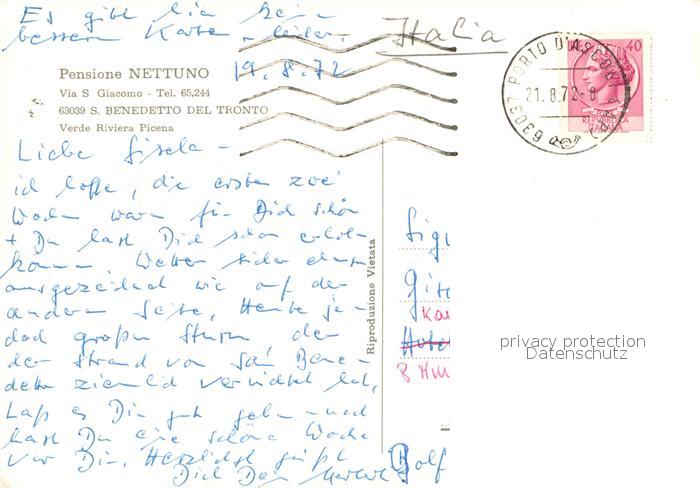 Es gibt hier kein
bessern Karten - leider.
Italia
19.8.72
Pensione NETTUNO
Via S Giacomo - Tel. 65,244
63039 S. BENEDETTO DEL TRONTO
Verde Riviera Picena
63037 PORTO D'ASCOLI
21.8.72-8
40
REPUBBLICA
ITALIANA
Liebe Gisela -
ich hoffe, die ersten zwei
Wochen waren für Dich schön
+ Du hast Dich schon erholen
können. Wetter hier
ausgezeichnet wie auf der
anderen Seite, Heute je-
doch großer Sturm, der
den Strand von San Bene-
detto ziemlich verwüstet hat,
Laß es Dir gut gehn und
hast Du eine schöne Woche
vor Dir. Herzlichst grüßt
Dich Dein Rolf
Riproduzione Vietata
Sig
Gise
Hote
8 Mün
privacy protection
Datenschutz